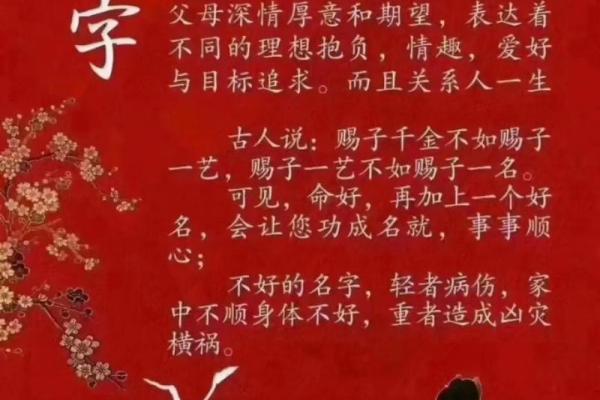 字
父母深情厚意和期望，表达着
不同的理想抱负，情趣，爱好
与目标追求。而且关系人一生
古人说：赐子千金不如赐子
一艺，赐子一艺不如赐子一名。
可见，命好，再加上一个好
名，会让您功成名就，事事顺
心；
不好的名字，轻者病伤，家
中不顺身体不好，重者造成凶灾
横祸。